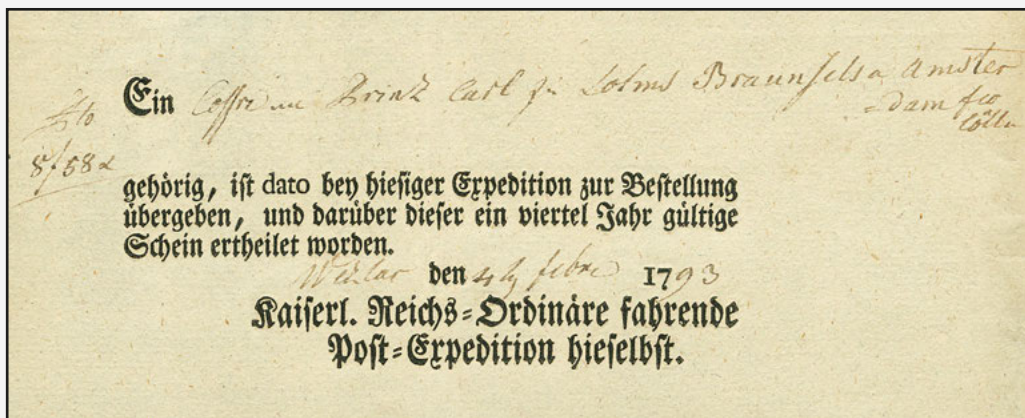 Ein Coffre an Prinz Carl zu Solms Braunfels a Amster
=dam fco
Cölln
fto
8 f 58 x
gehörig, ist dato bey hiesiger Expedition zur Bestellung
übergeben, und darüber dieser ein viertel Jahr gültige
Schein ertheilet worden.
Wetzlar den 4 febr 1793
Kaiserl. Reichs=Ordinäre fahrende
Post=Expedition hieselbst.